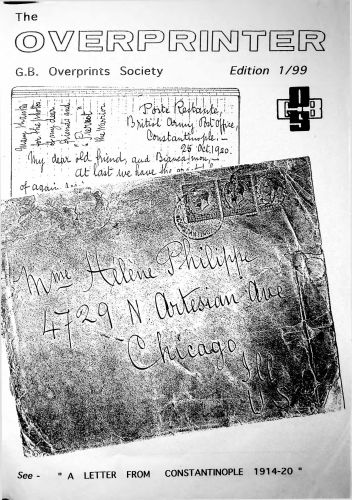 The
OVERPRINTER
G.B. Overprints Society
Edition 1/99
GB
OS
Many thanks
for the photos
of my dear
friends and
Poste Restante,
British Army Post Office,
Constantinople.-
25 Oct. 1920.-
My dear old friend, and
At last we have the
of again
Mme Hélène Philippe
4729 N. Artesian Ave
Chicago
Ill
U.S.A.
See - " A LETTER FROM CONSTANTINOPLE 1914-20 "